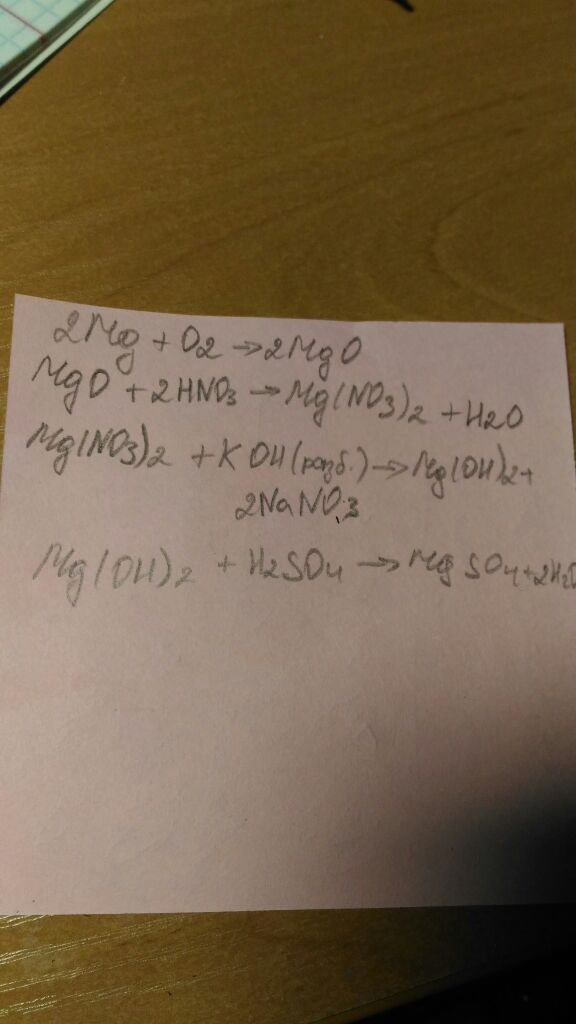 2Mg + O2 → 2MgO
MgO + 2HNO3 → Mg(NO3)2 + H2O
Mg(NO3)2 + KOH (разб.) → Mg(OH)2 +
2NaNO3
Mg(OH)2 + H2SO4 → MgSO4 + 2H2O